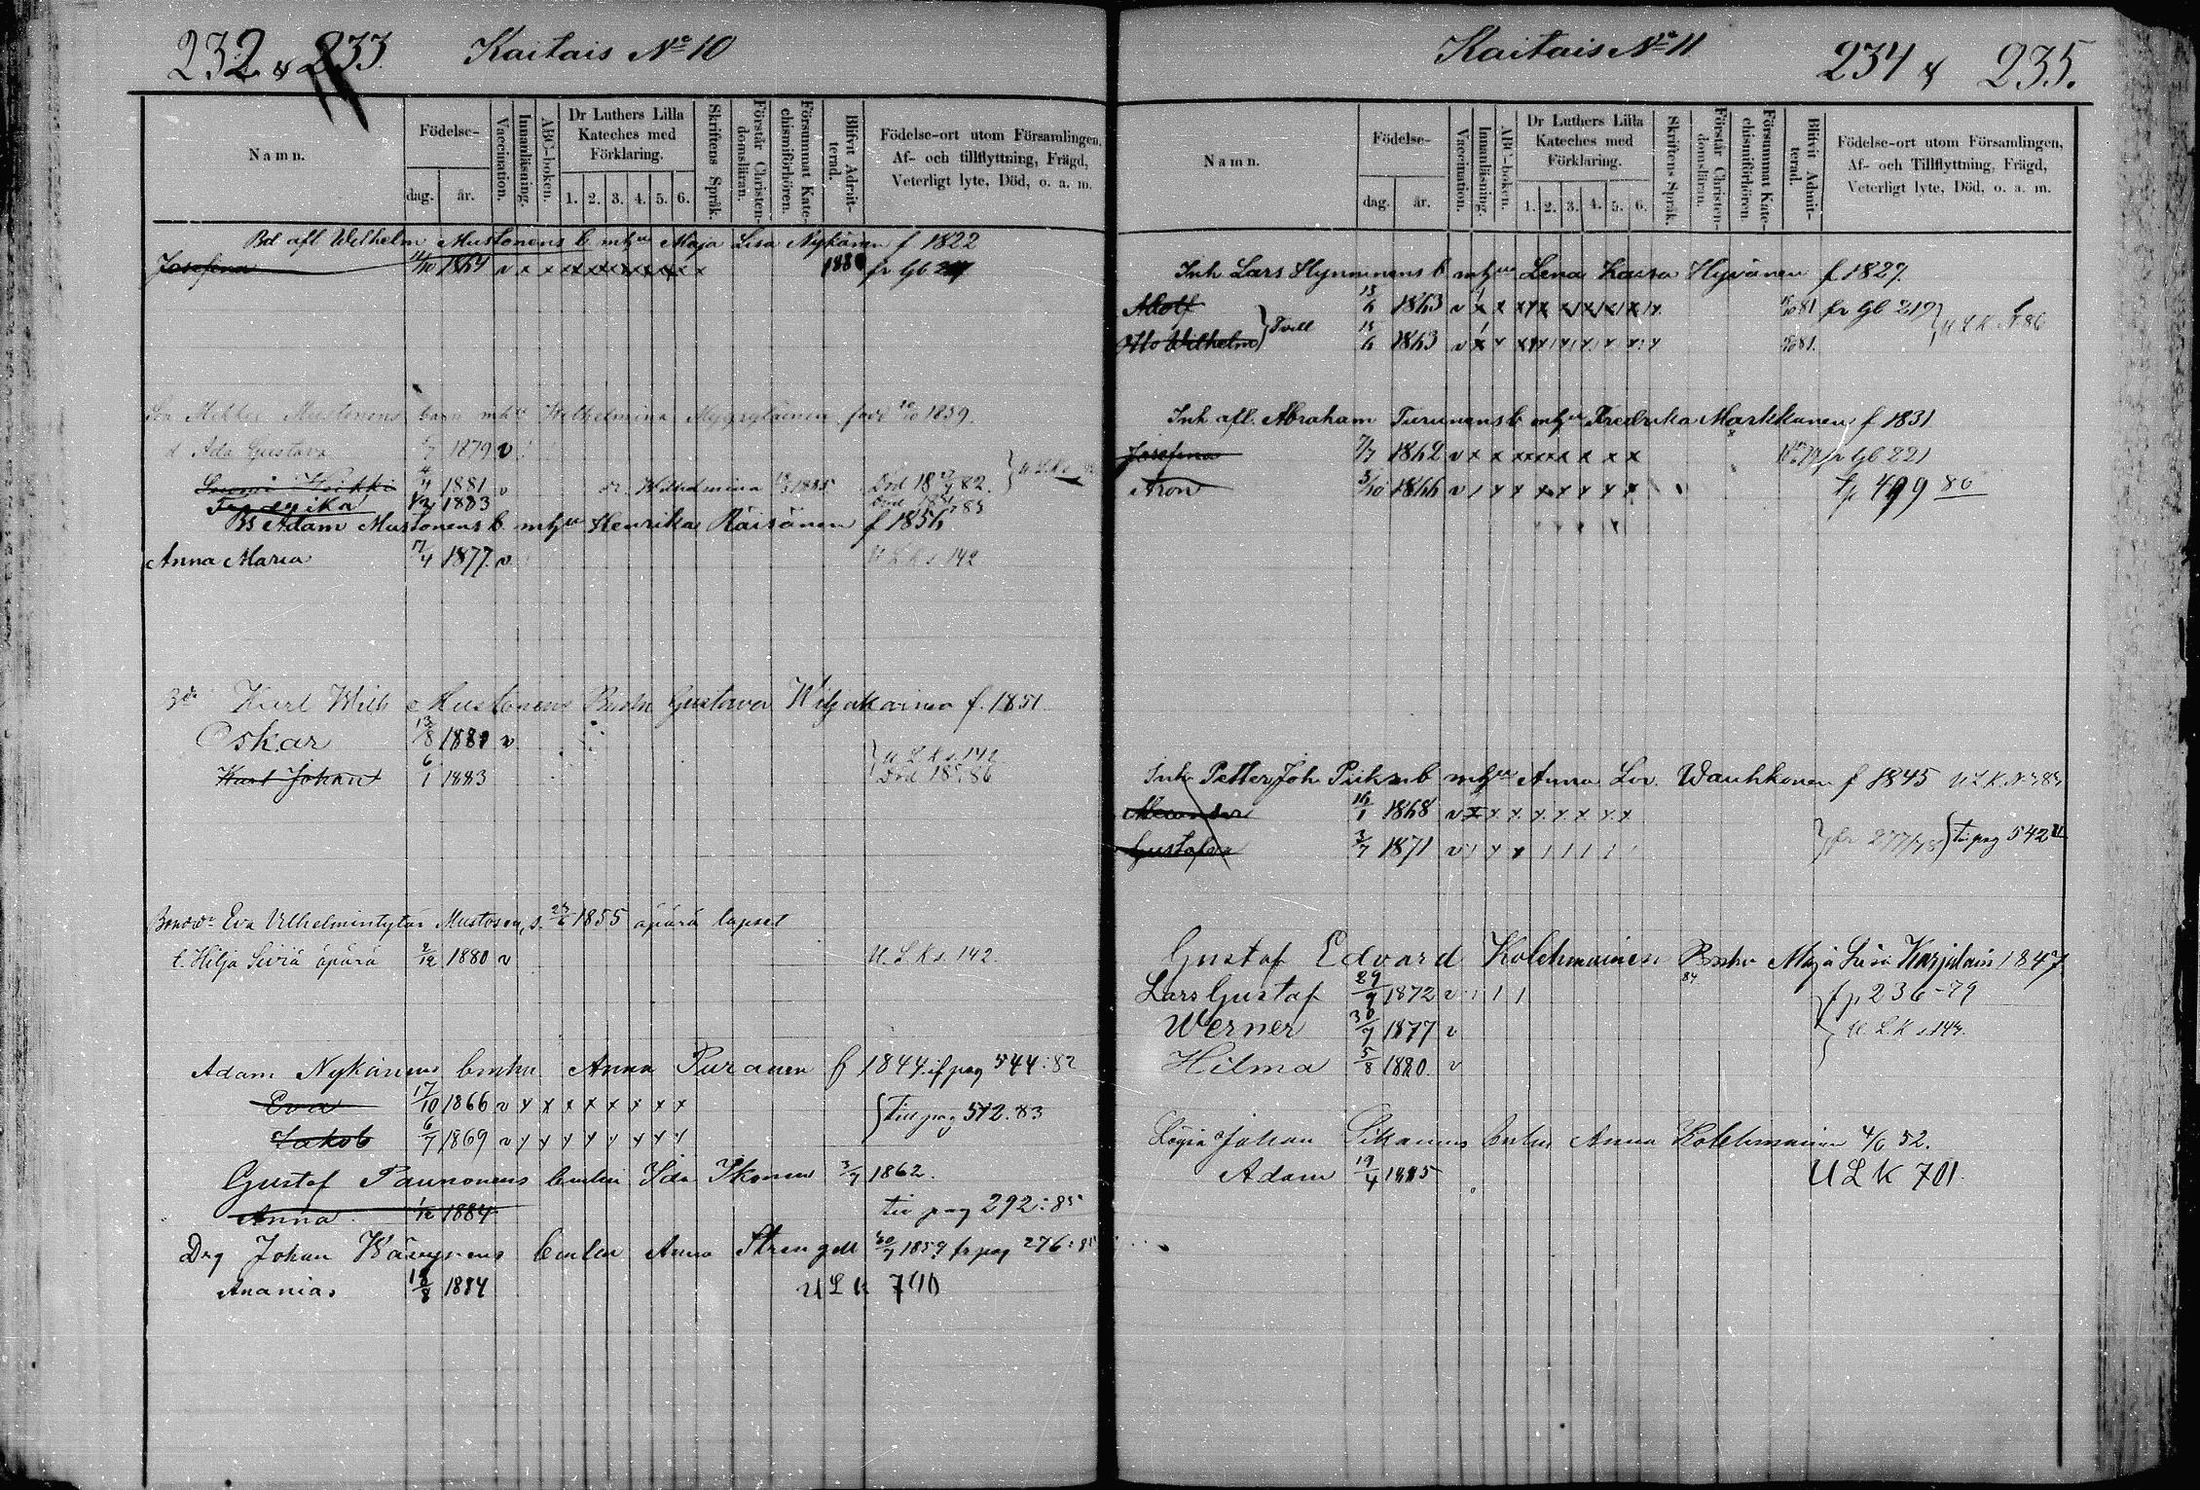 232 & 233. Kaitais No 10
Namn.
Födelse-
dag.
år.
Vaccination.
Innanläsning.
ABC-boken.
Dr Luthers Lilla
Kateches med
Förklaring.
1. 2. 3. 4. 5. 6.
Skriftens Språk.
Förstår Christen-
domsläran.
Försummat Kate-
chismiförhören.
Blifvit Admit-
terad.
Födelse-ort utom Församlingen,
Af- och tillflyttning, Frägd,
Veterligt lyte, Död, o. a. m.
Bd afl Wilhelm Mustonens b mhu Maja Lisa Nykänen f 1822
Josefena 14/10 1864 v x x x x x x x x x 1880 fr Gb
Mustonens barn mhu Wilhelmina född 1859.
d Ada Gustava 1879 v
Heikki 4/4 1881 v Wilhelmina 1885 Död 18 82.
Fredrika 1883 Död 18 85
Bs Adam Mustonens b mhu Henrika Räisänen f 1856
Anna Maria 17/4 1877 v U L K s 142
Karl Wilh Mustonens Bmhu Gustava Wiljakainen f. 1851
Oskar 13/8 1881 v U L K s 142
Karl Johan 6/1 1883 Död 18 86
Eva Vilhelmintytär Mustonen, s. 1855 äpärä lapset
t. Hilja Siviä äpärä 2/12 1880 v U. L. K s. 142.
Adam Nykänens bmhu Anna Puranen f 1844 if pag 544:82
Eva 17/10 1866 v x x x x x x x x
Till pag 572.83
Jakob 6/7 1869 v x x x x x x x x
Gustaf Paunonens bmhu Ida Ikonen 3/7 1862.
Anna 1/12 1884 till pag 292:85
Drg Johan Käyryinens bmhu Anna Strengell 30/7 1859 fr pag 276:85
Ananias 18/8 1884 U L K 700
Kaitais No 11 234 & 235.
Namn.
Födelse-
dag.
år.
Vaccination.
Innanläsning.
ABC-boken.
Dr Luthers Lilla
Kateches med
Förklaring.
1. 2. 3. 4. 5. 6.
Skriftens Språk.
Förstår Christen-
domsläran.
Försummat Kate-
chismiförhören.
Blifvit Admit-
terad.
Födelse-ort utom Församlingen,
Af- och Tillflyttning, Frägd,
Veterligt lyte, Död, o. a. m.
Inh Lars Hynninens b mhu Lena Kaisa Hyvönen f 1829.
Adolf 15/6 1863 v x x x x x x x x 81 fr Gb 219
Otto Wilhelm Tvill 15/6 1863 v x x x x x x x x 81 U L K N 86
Inh afl. Abraham Turunens b mhu Fredrika Markkanen f 1831
Josefina 7/7 1862 v x x x x x x x x fr Gb 221
Aron 3/10 1866 v x x x x x x x fp 499 80
Inh Petter Joh Piiksen b mhu Anna Lov. Wauhkonen f 1845
Alexander 16/1 1868 v x x x x x x x x
Gustafva 3/7 1871 v fr 277/78 till pag 542
Gustaf Edvard Kolehmainen Bmhu Maja Liisa Karjalain 1847
Lars Gustaf 29/9 1872 v fp 236-79
Werner 30/7 1877 v U L K s 143.
Hilma 5/8 1880. v
Johan Sikanens bmhu Anna Kolehmainen 4/6 52.
Adam 19/4 1885 U L K 701.